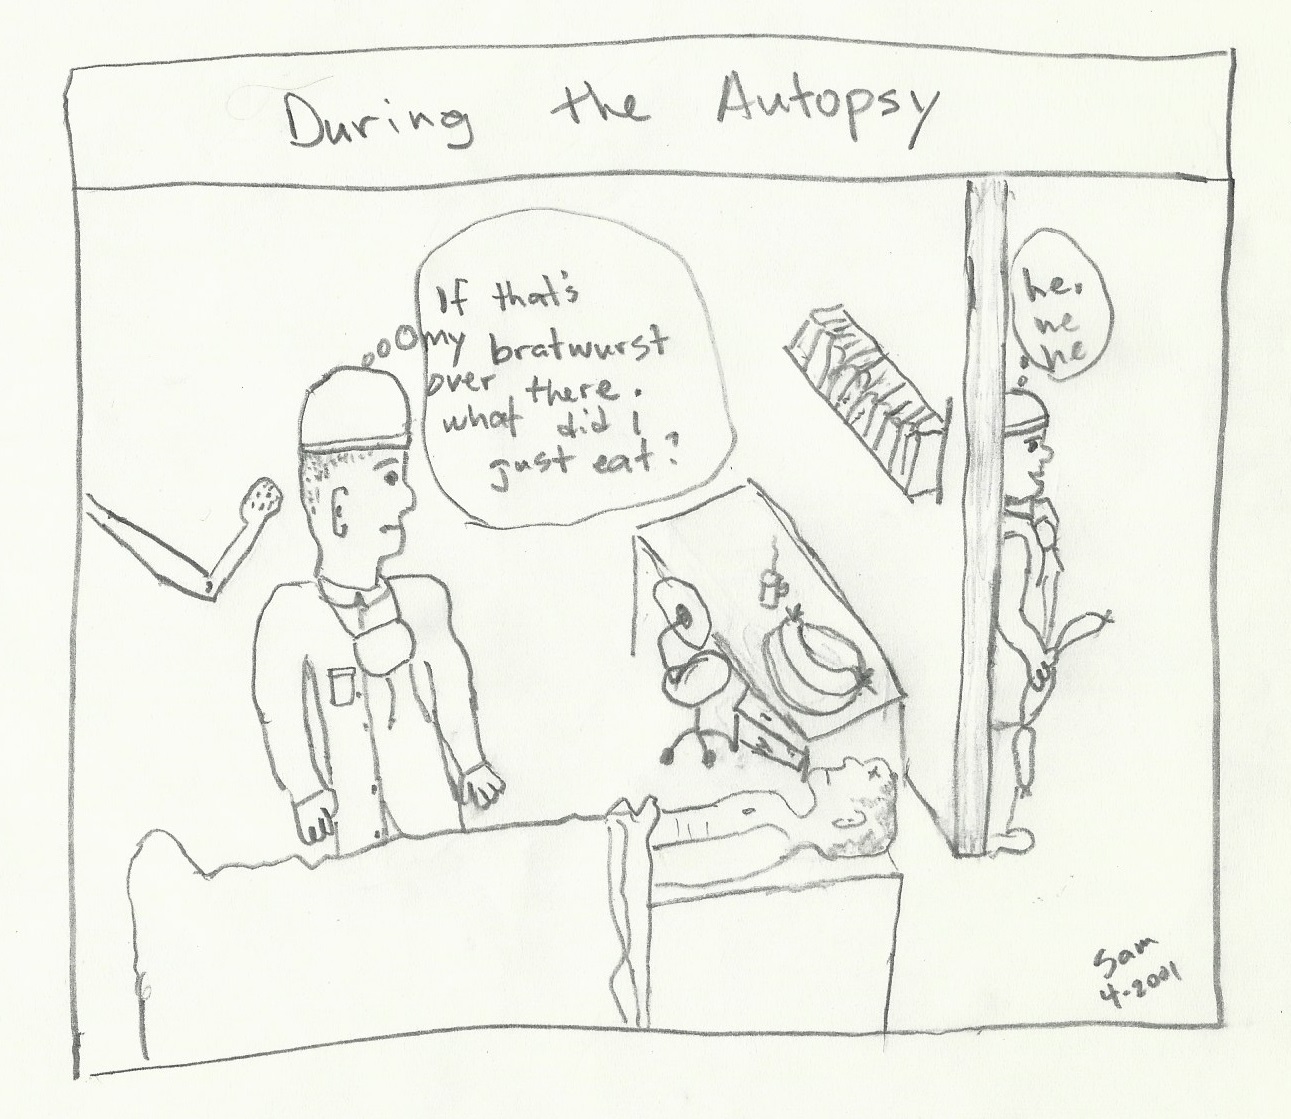 During the Autopsy
If that's
my bratwurst
over there.
what did I
just eat?
he.
he
he
Sam
4-2001